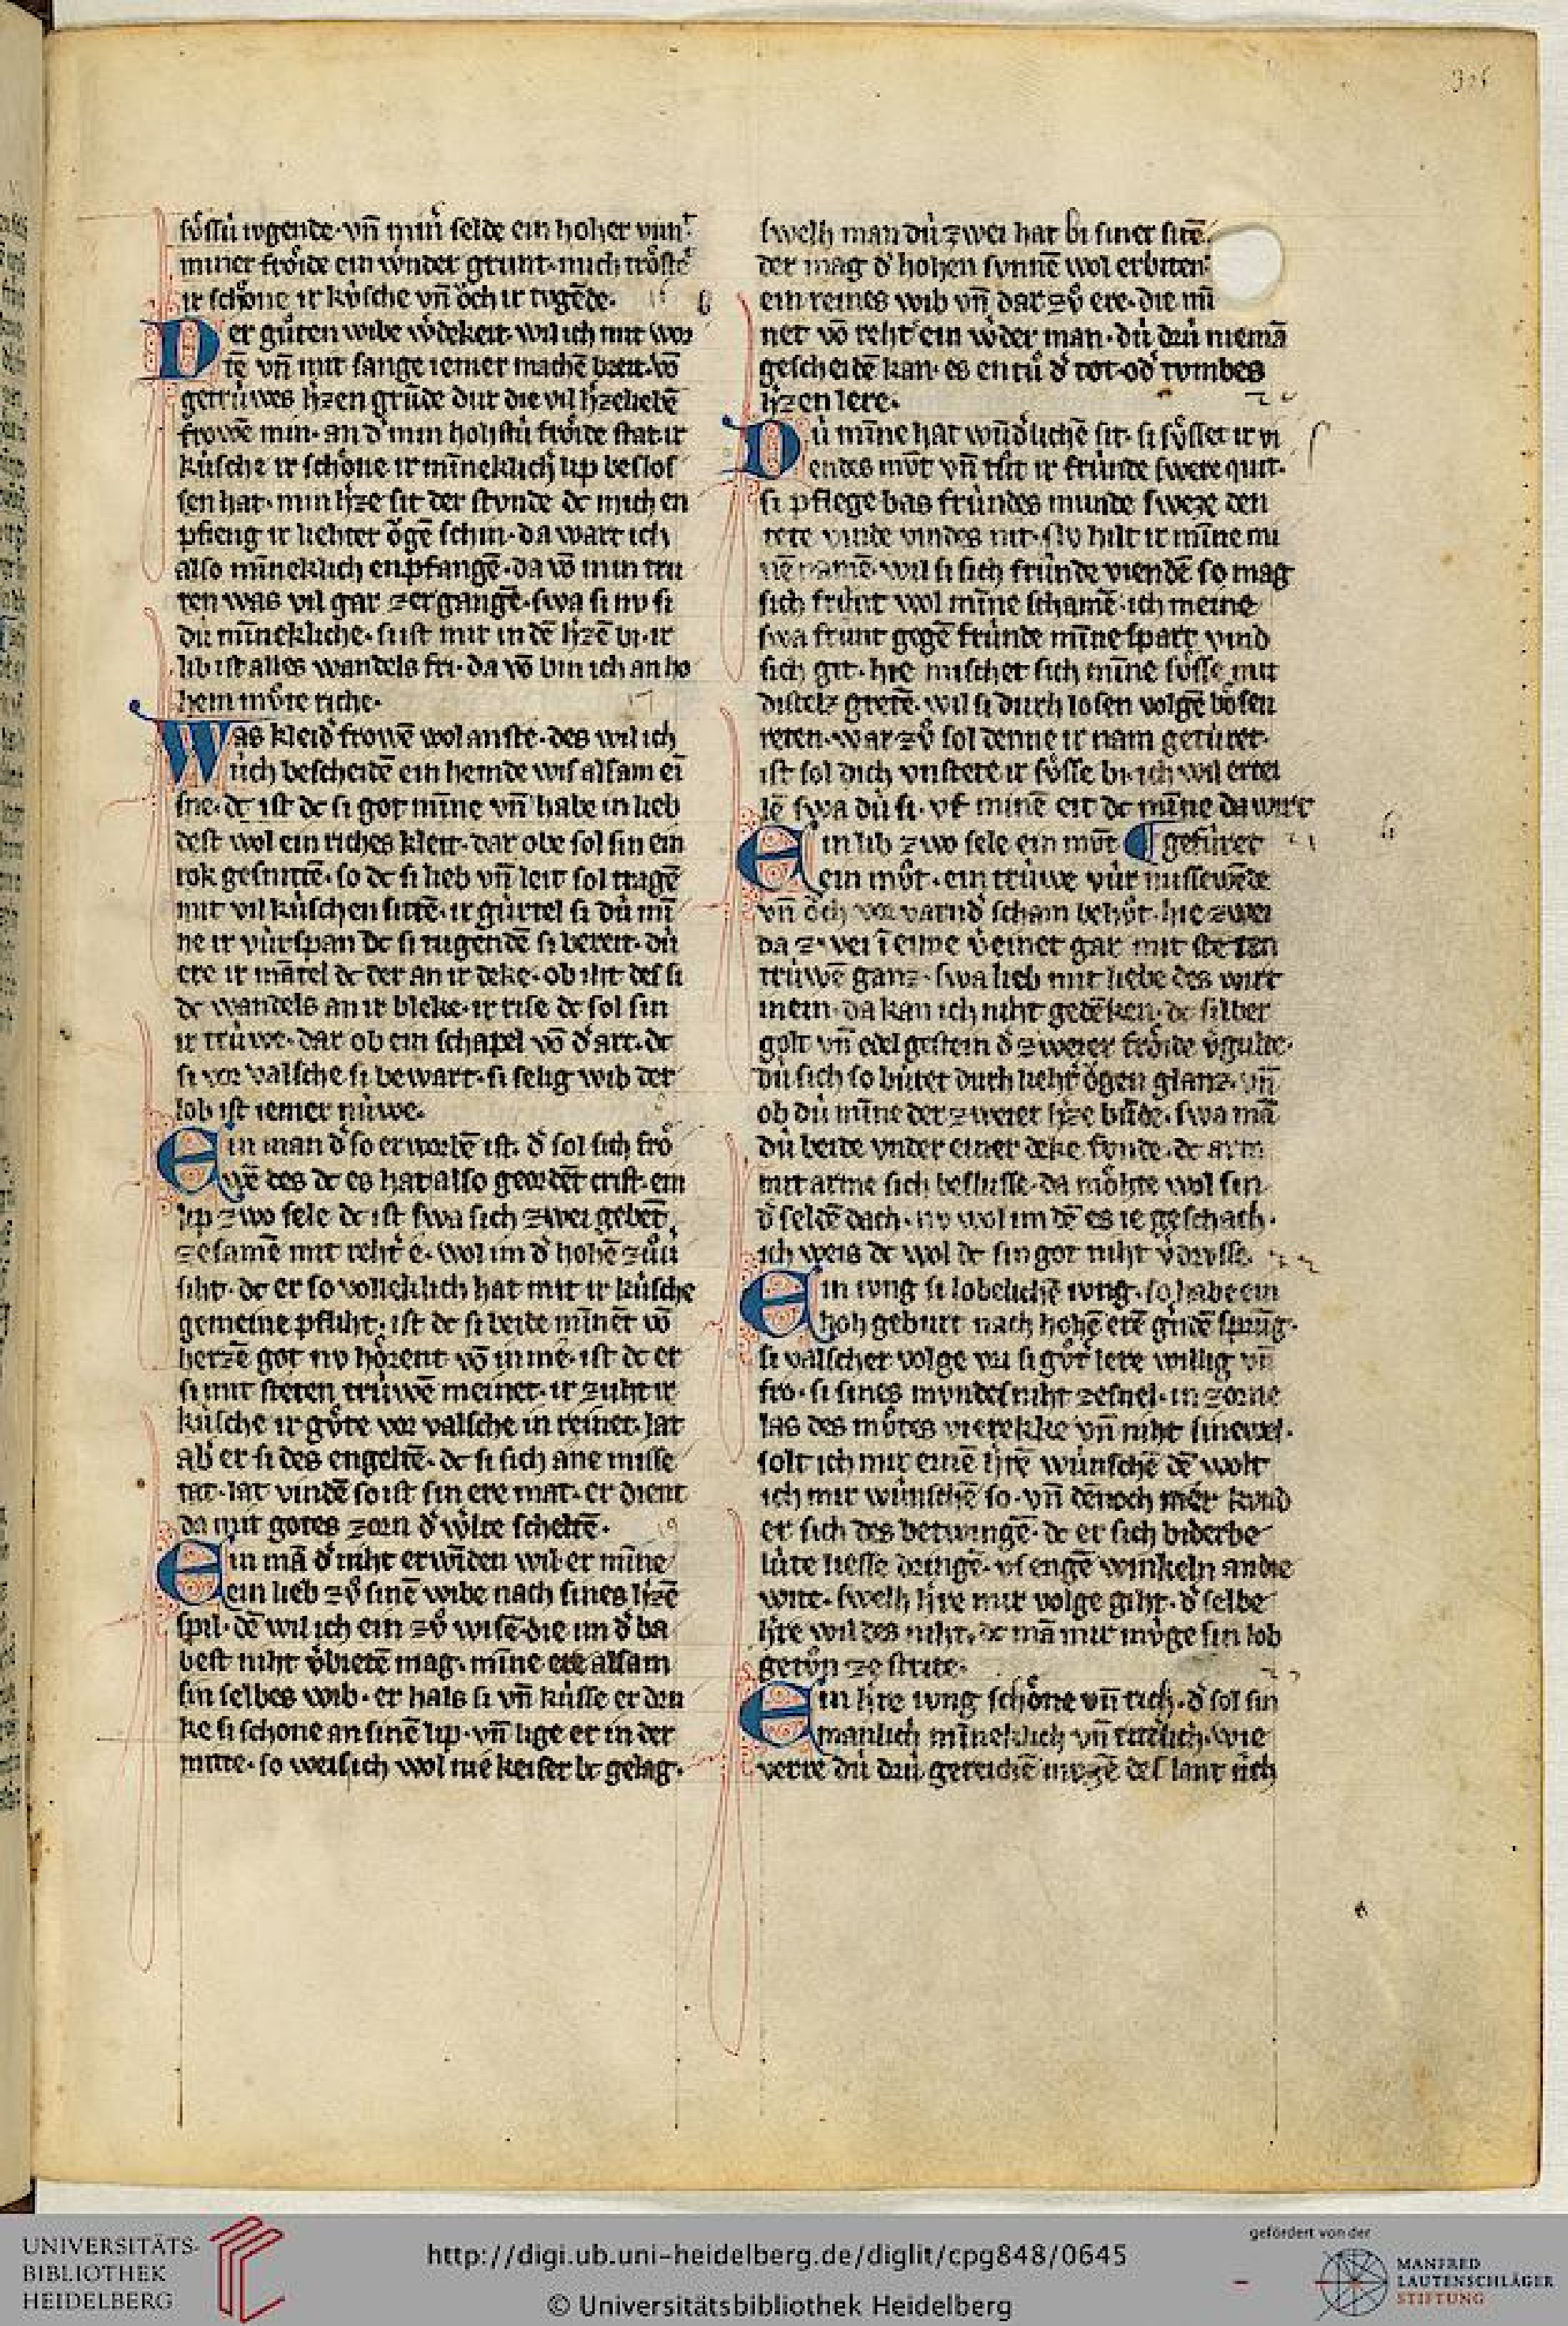 sössú tvgende · vñ min selde ein hoher vun
miner fröide ein wnder grunt · mich tröste
ir schöne ir kúsche vñ och ir tvgēde ·
Der gůten wibe wdekeit · wil ich mit wor
tē vñ mit sange iemer machē breit · võ
getrúwes h'zen grūde dur die vil h'zeliebē
frowē min · an d' min hohstú fröide stat ir
kúsche ir schöne ir mīneklich lip beslos
sen hat · min h'ze sit der stvnde dc mich en
pfieng ir liehter ögē schin · da wart ich
also mīneklich enpfangē · da võ min tru
ren was vil gar zergangē · swa si nv si
dú mīnekliche · sust mir in dē h'zē bi · ir
lib ist alles wandels fri · da võ bin ich an ho
hem můte riche ·
Was kleid' frowē wol anste · des wil ich
úch bescheidē ein hemde wis alsam ei
sne · dc ist dc si got mīne vñ habe in lieb
dest wol ein riches kleit · dar obe sol sin ein
rok gesnittē · so dc si lieb vñ leit sol tragē
mit vil kúschen sittē · ir gúrtel si dú mī
ne ir vúrspan dc si tugendē si bereit · dú
ere ir mātel dc der an ir deke · ob iht des si
dc wandels an ir bleke · ir rise dc sol sin
ir trúwe · dar ob ein schapel võ d' art · dc
si vor valsche si bewart · si selig wib der
lob ist iemer núwe ·
Ein man d' so erworbē ist · d' sol sich frö
wē des dc es hat also geordēt crist · ein
lip zwo sele dc ist swa sich zwei gebēt
zesamē mit reht' e · wol im d' hohē zůū
siht · dc er so volleklich hat mit ir kúsche
gemeine pfliht · ist dc si beide mīnēt võ
herzē got nv hörent võ in me · ist dc er
si mit steten trúwē meinet · ir zuht ir
kúsche ir gůte vor valsche in reinet · lat
ab' er si des engeltē · dc si sich ane misse
tat · lat vindē so ist sin ere mat · er dient
da mit gotes zorn d' wlte scheltē ·
Ein mā d' niht erwīden wil · er mīne
ein lieb zů sinē wibe nach sines h'zē
spil · dē wil ich ein zů wisē · die im d' ba
best niht v'bietē mag · mīne alsam
sin selbes wib · er hals si vñ kússe er dru
ke si schone an sinē lip · vñ lige er in der
mitte · so weis ich wol nie keiser bc gelag ·
swelh man dú zwei hat bi siner sitē
der mag d' hohen svnnē wol erbiten
ein reines wib vñ dar zů ere · die mī
net võ reht ein wder man · dú drú niemā
gescheidē kan · es entů d' tot od' tvmbes
h'zen lere ·
Dú mīne hat wūd'lichē sit · si sússet ir vi
endes můt vñ tůt ir frúnde swere quit ·
si pflege bas frúndes munde sweze den
rete vinde vindes nit · siv hilt ir mīne mi
nē namē · wil si sich frúnde viendē so mag
sich frúnt wol mīne schamē · ich meine
swa frunt gegē frúnde mīne spart vind
sich git · hie mischet sich mīne sússe mit
distels gretē · wil si durch losen volgē bösen
reten · war zů sol denne ir nam getúret ·
ist sol dich vnstete ir sússe bi · ich wil ertei
lē swa dú si · vf minē eit dc mīne da wirt
Ein lib zwo sele ein můt ¶ gefúret
ein můt · ein trúwe vúr missewēde
vñ öch vor varnd' scham behůt · hie zwei
da zwei ī eime v'einet gar mit steten
trúwē ganz · swa lieb mit liebe des wirt
inein · da kan ich niht gedēken · dc silber
golt vñ edel gestein d' zweier fröide v'gulte ·
dú sich so bútet durch lieht' ögen glanz · vñ
ob dú mīne der zweier h'ze būde · swa mā
dú beide vnder einer deke fvnde · dc arm
mit arme sich beslusse · da möhte wol sin
d' seldē dach · nv wol im dē es ie geschach ·
ich weis dc wol dc sin got niht v'drvsse
Ein ivng si lobelichē ivng · so habe ein
hoh geburt nach hohē erē gůdē sprūg ·
si valscher volge vri si gůt' lere willig vñ
fro · si sines mvndes niht zesnel · in zorne
las des můtes vierekke vñ niht sinewel ·
solt ich mir einē h'rē wúnschē dē wolt
ich mir wúnschē so · vñ dēnoch mēr kvnd
er sich des betwingē · dc er sich biderbe
lúte liesse dringē · vs engē winkeln an die
wite · swelh h're mir volge giht · d' selbe
h're wil des niht · dc mā mir mvge sin lob
getůn ze strite ·
Ein h're ivng schöne vñ rich · d' sol sin
manlich mīneklich vñ ritt'lich · wie
verre dú drú gereichē mvgē des lant úch
UNIVERSITÄTS-
BIBLIOTHEK
HEIDELBERG
http://digi.ub.uni-heidelberg.de/diglit/cpg848/0645
© Universitätsbibliothek Heidelberg
gefördert von der
MANFRED
LAUTENSCHLÄGER
STIFTUNG